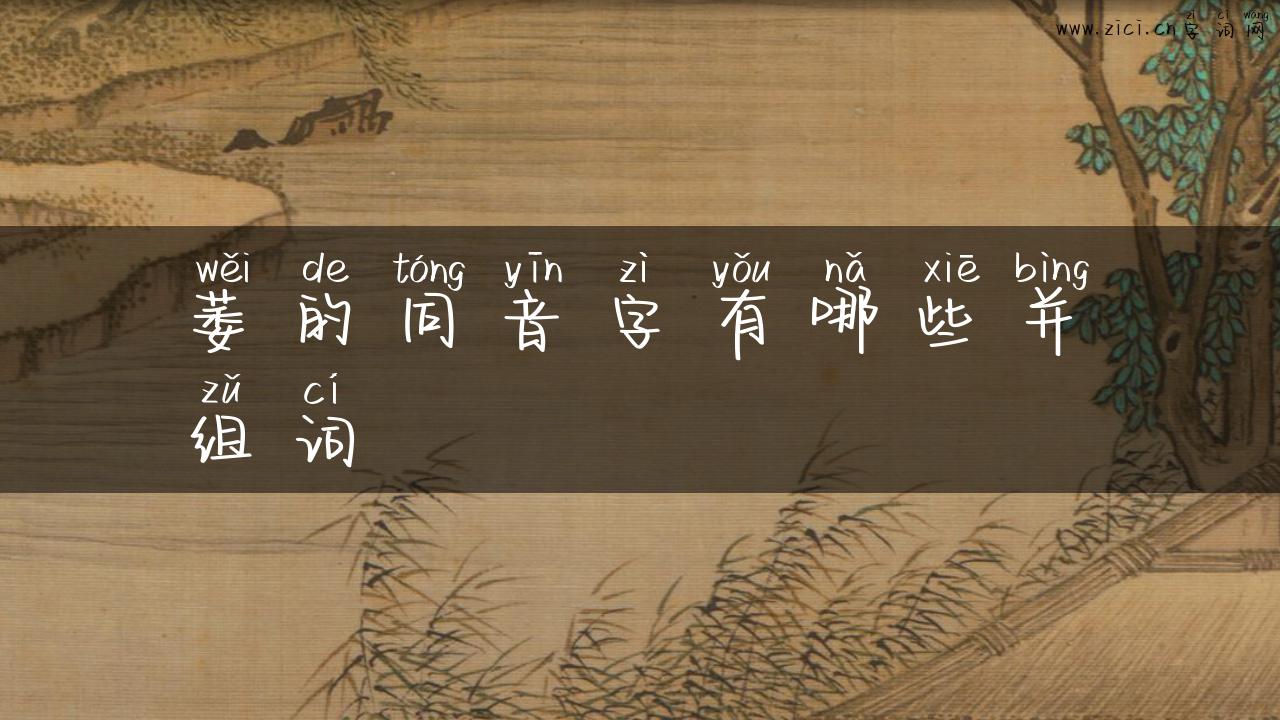 zì cí wǎng
www.zici.cn字词网
wěi de tóng yīn zì yǒu nǎ xiē bìng
萎的同音字有哪些并
zǔ cí
组词